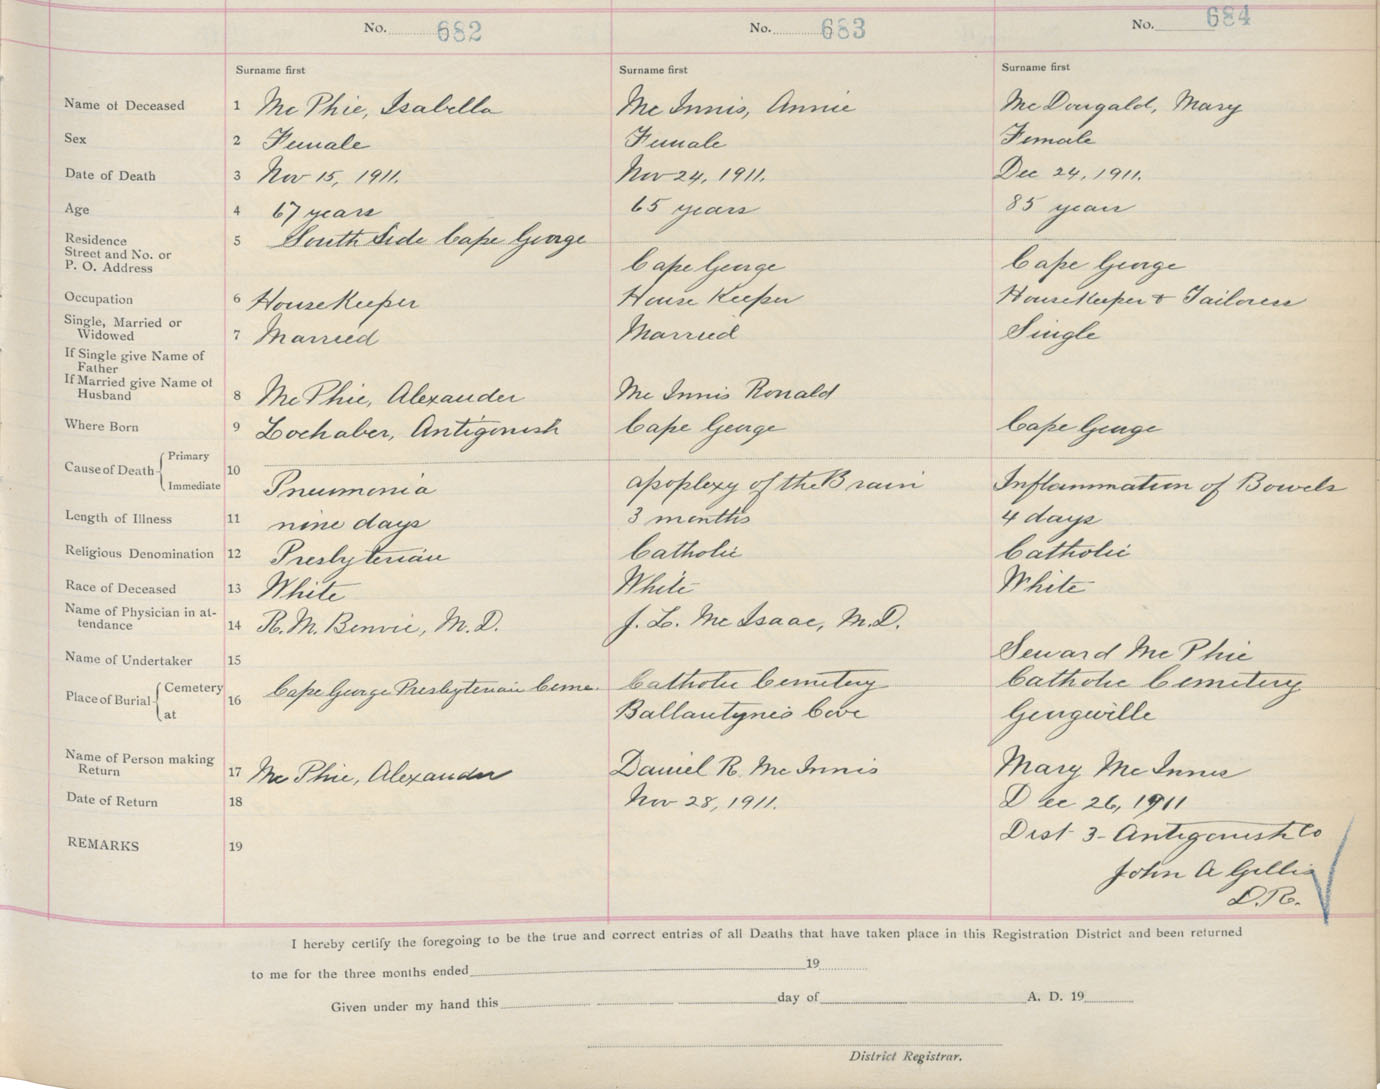 No. 682 No. 683 No. 684
Surname first Surname first Surname first
Name of Deceased 1 McPhie, Isabella McInnis, Annie McDougald, Mary
Sex 2 Female Female Female
Date of Death 3 Nov 15, 1911. Nov 24, 1911. Dec 24, 1911.
Age 4 67 years 65 years 85 years
Residence 5 South Side Cape George
Street and No. or
P. O. Address Cape George Cape George
Occupation 6 HouseKeeper House Keeper HouseKeeper & Tailoress
Single, Married or
Widowed 7 Married Married Single
If Single give Name of
Father
If Married give Name of
Husband 8 McPhie, Alexander McInnis Ronald
Where Born 9 Lochaber, Antigonish Cape George Cape George
Cause of Death Primary 10
Immediate Pneumonia apoplexy of the Brain Inflammation of Bowels
Length of Illness 11 nine days 3 months 4 days
Religious Denomination 12 Presbyterian Catholic Catholic
Race of Deceased 13 White White White
Name of Physician in at-
tendance 14 R. M. Benvie, M.D. J. L. McIsaac, M.D.
Name of Undertaker 15 Seward McPhie
Place of Burial Cemetery 16 Cape George Presbyterian Ceme. Catholic Cemetery Catholic Cemetery
at Ballantynes Cove Georgeville
Name of Person making
Return 17 McPhie, Alexander Daniel R. McInnis Mary McInnes
Date of Return 18 Nov 28, 1911. Dec 26, 1911
REMARKS 19 Dist 3 - Antigonish Co
John A Gillis
D.R.
I hereby certify the foregoing to be the true and correct entries of all Deaths that have taken place in this Registration District and been returned
to me for the three months ended 19
Given under my hand this day of A. D. 19
District Registrar.